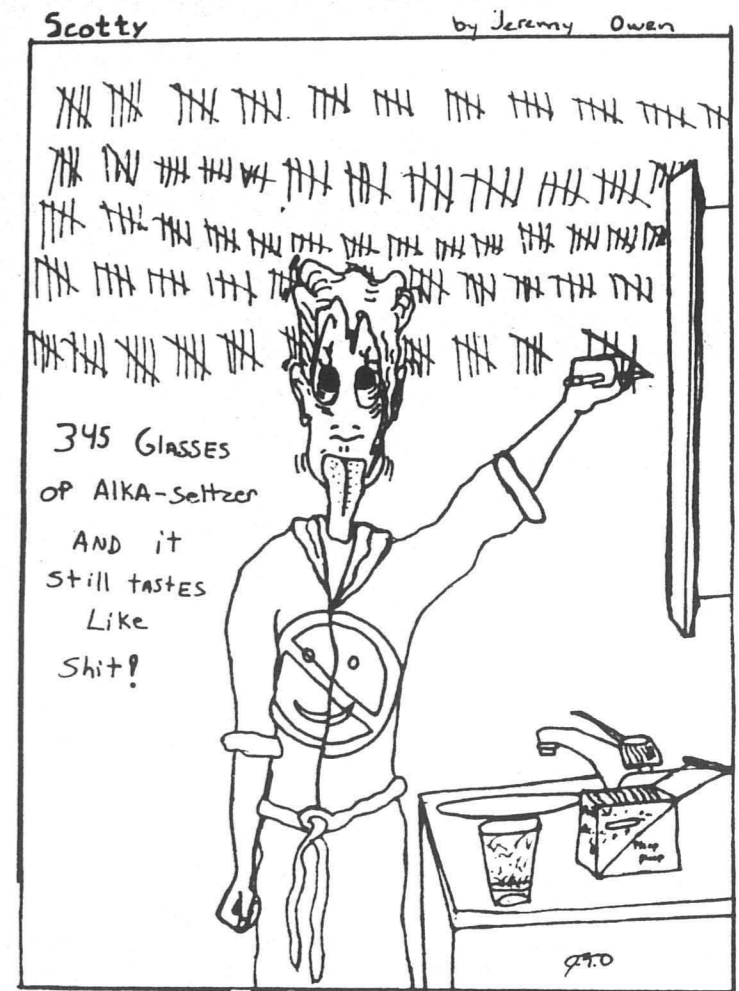 Scotty by Jeremy Owen
345 GLASSES
OP AlKA-Seltzer
AND it
Still tASTES
Like
Shit!
Plop
J.G.O